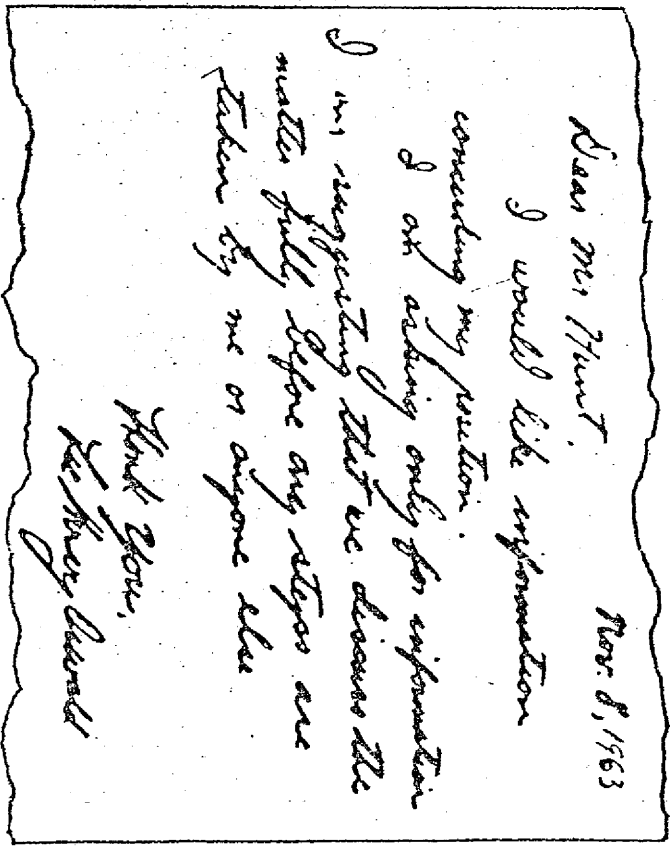 Nov. 8, 1963
Dear Mr. Hunt,
I would like information
concerding my position.
I am asking only for information
I am suggesting that we discuss the
matter fully before any steps are
taken by me or anyone else
Thank You,
Lee Harvey Oswald